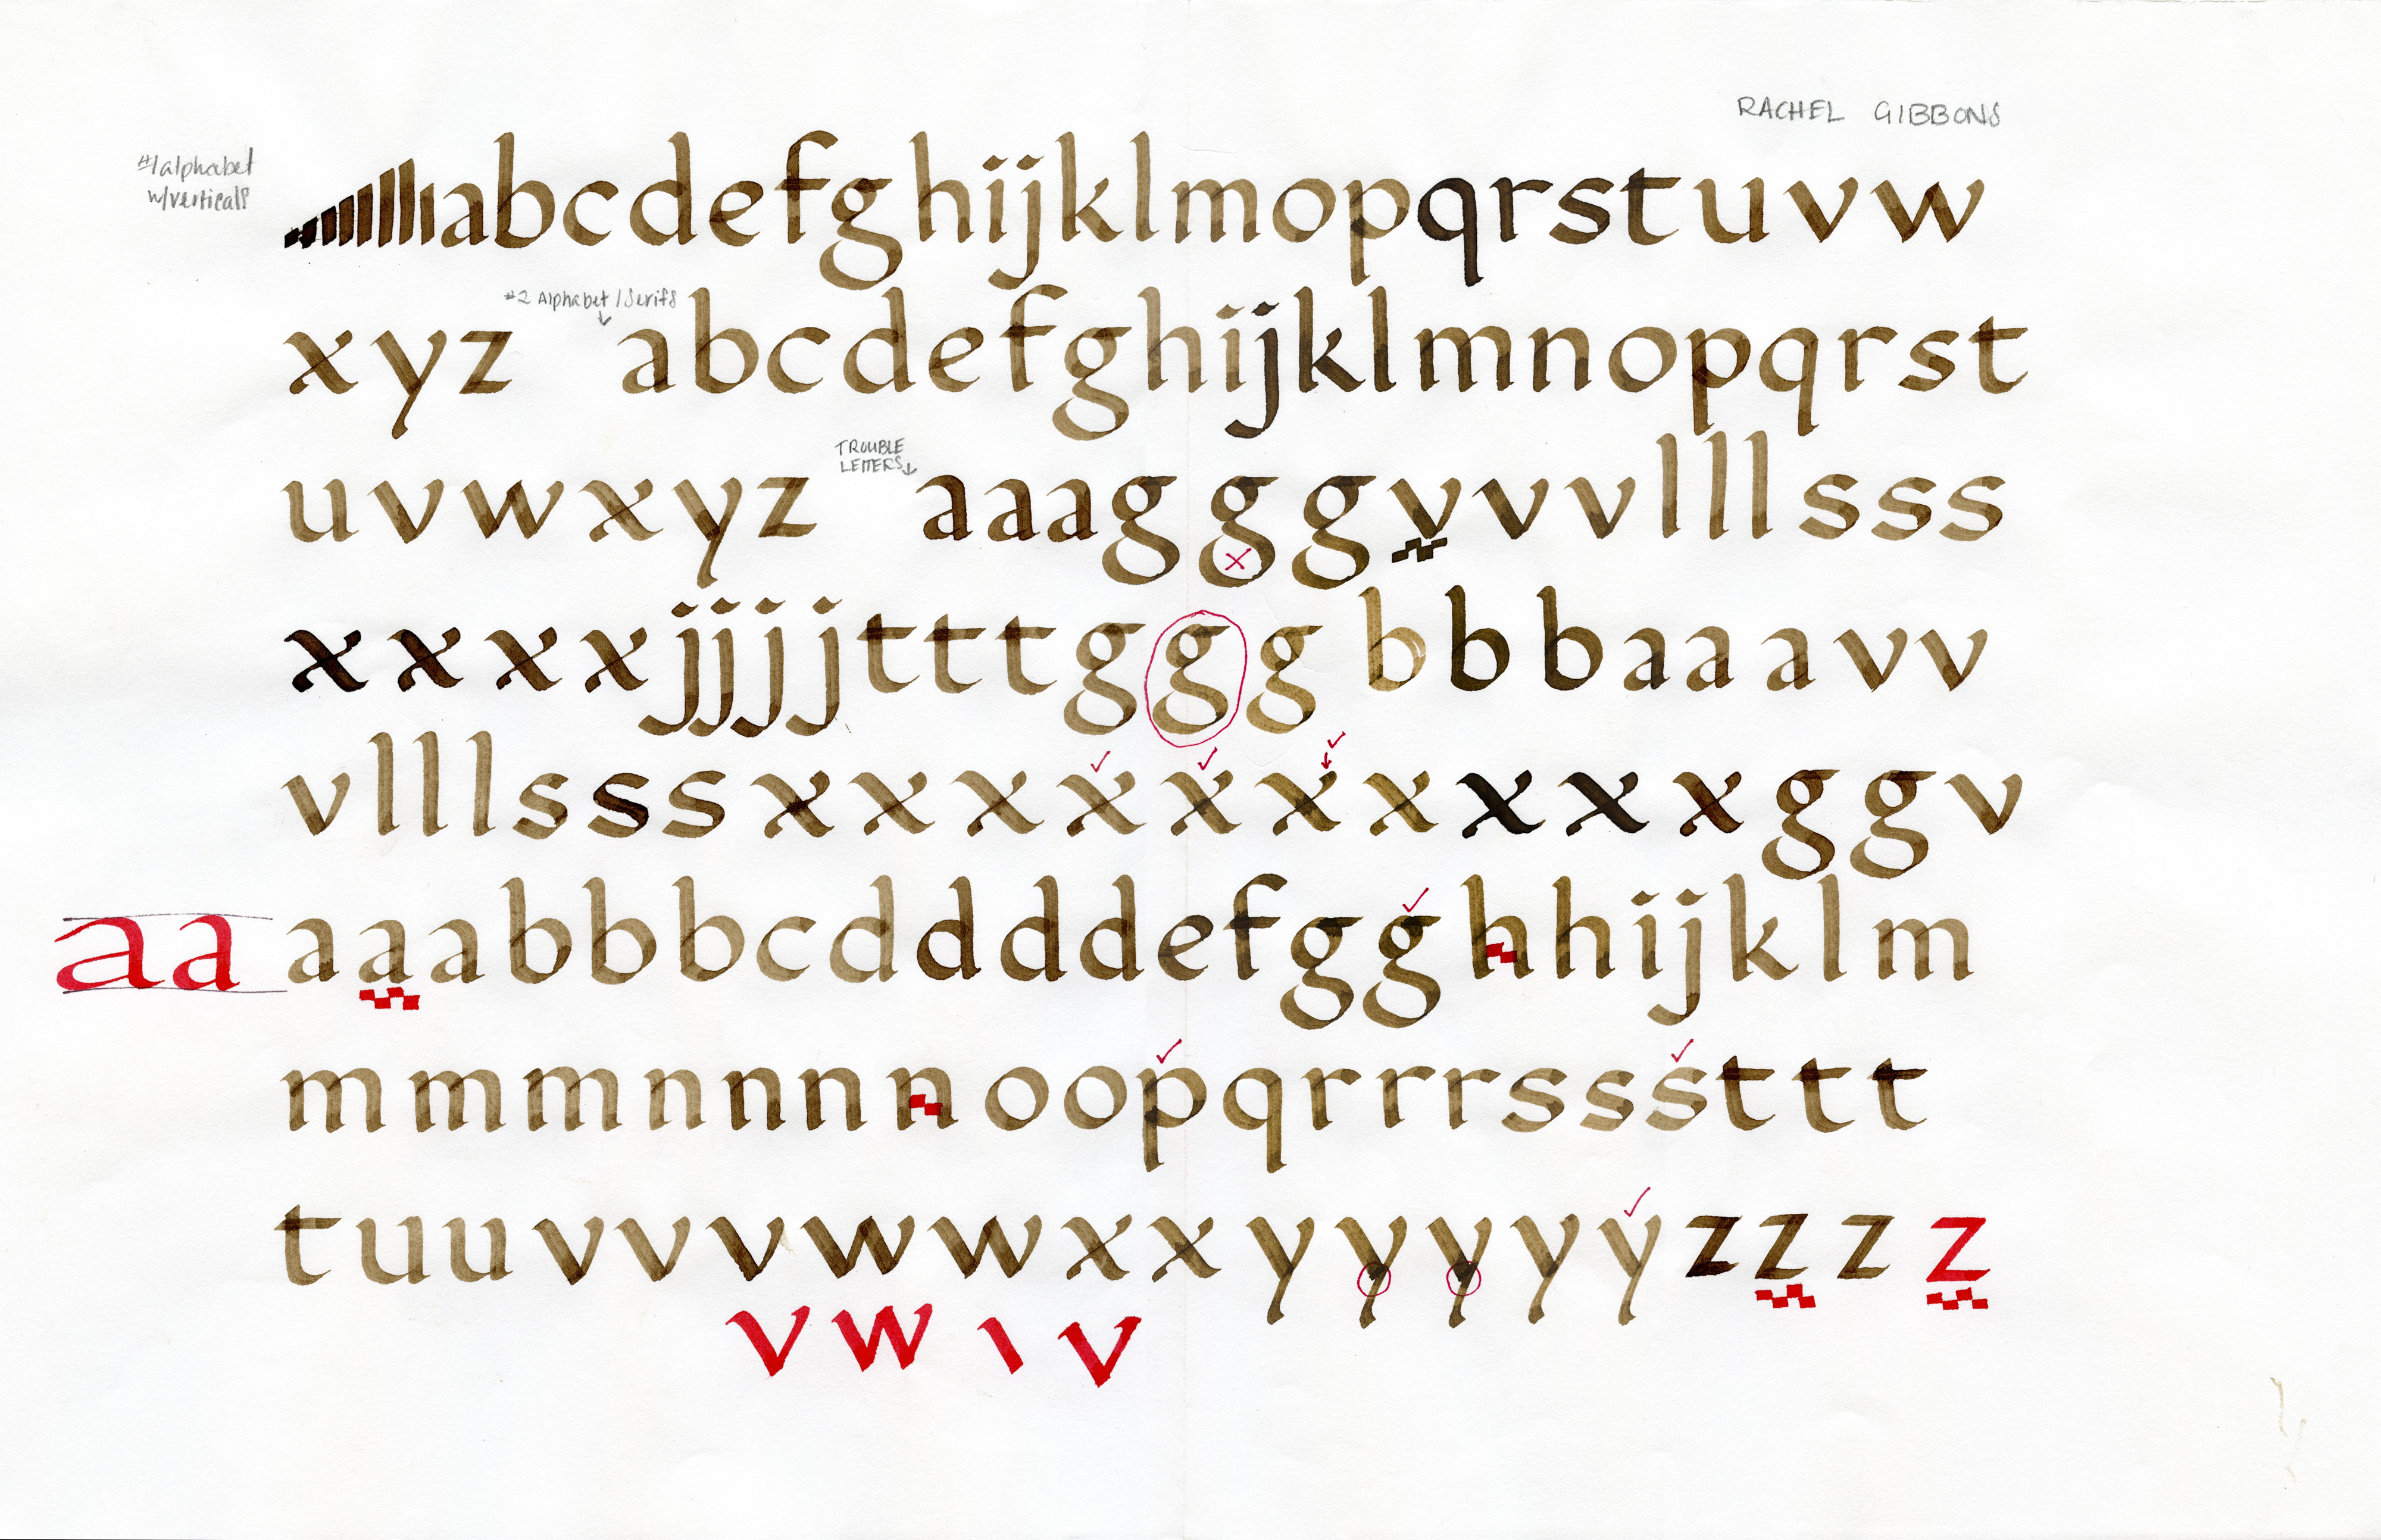 RACHEL GIBBONS
#1 alphabet
w/verticals
abcdefghijklmopqrstuvw
#2 Alphabet / Serifs
xyz abcdefghijklmnopqrst
TROUBLE
LETTERS
uvwxyz aaagggvvvlllsss
xxxxjjjjtttgggbbbaaavv
vlllsssxxxxxxxxxxggv
aa aaabbbcddddefgghhijklm
mmmnnnnoopqrrrsssttt
tuuvvvwwxxyyyyyzzz z
vwıv